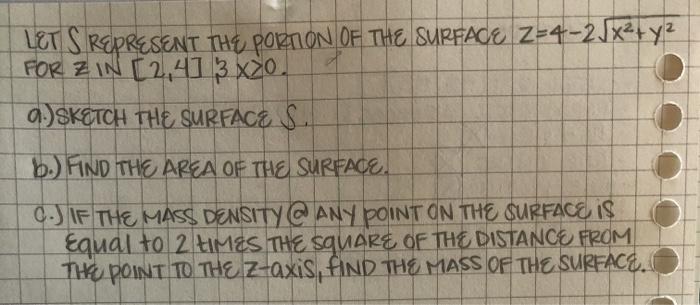 LET S REPRESENT THE PORTION OF THE SURFACE Z=4-2√x²+y²
FOR Z IN [2,4] & X≥0.
a.) SKETCH THE SURFACE S.
b.) FIND THE AREA OF THE SURFACE.
C.) IF THE MASS DENSITY @ ANY POINT ON THE SURFACE IS
Equal to 2 tIMES THE SQUARE OF THE DISTANCE FROM
THE POINT TO THE Z-axis, FIND THE MASS OF THE SURFACE.